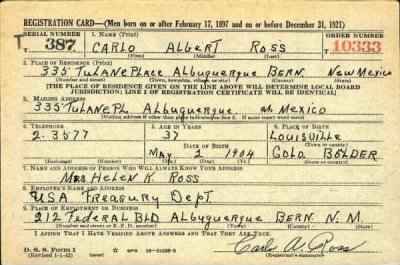 REGISTRATION CARD—(Men born on or after February 17, 1897 and on or before December 31, 1921)
SERIAL NUMBER 1. NAME (Print) ORDER NUMBER
T 387 CARLO Albert Ross T 10333
(First) (Middle) (Last)
2. PLACE OF RESIDENCE (Print)
335 TuLANE PLACE Albuquerque BERN. New Mexico
(Number and street) (Town, township, village, or city) (County) (State)
[THE PLACE OF RESIDENCE GIVEN ON THE LINE ABOVE WILL DETERMINE LOCAL BOARD
JURISDICTION; LINE 2 OF REGISTRATION CERTIFICATE WILL BE IDENTICAL]
3. MAILING ADDRESS
335 TuLANE PL Albuquerque N. Mexico
[Mailing address if other than place indicated on line 2. If same insert word same]
4. TELEPHONE 5. AGE IN YEARS 6. PLACE OF BIRTH
2-3577 37 Louisville
DATE OF BIRTH (Town or county)
May 2 1904 Colo BOLDER
(Exchange) (Number) (Mo.) (Day) (Yr.) (State or country)
7. NAME AND ADDRESS OF PERSON WHO WILL ALWAYS KNOW YOUR ADDRESS
Mrs Helen K. Ross
8. EMPLOYER'S NAME AND ADDRESS
USA Treasury Dept
9. PLACE OF EMPLOYMENT OR BUSINESS
212 Federal BLD Albuquerque BERN. N. M
(Number and street or R. F. D. number) (Town) (County) (State)
I AFFIRM THAT I HAVE VERIFIED ABOVE ANSWERS AND THAT THEY ARE TRUE.
D. S. S. Form 1
(Revised 1-1-42) (over)
Carlo A. Ross
(Registrant's signature)